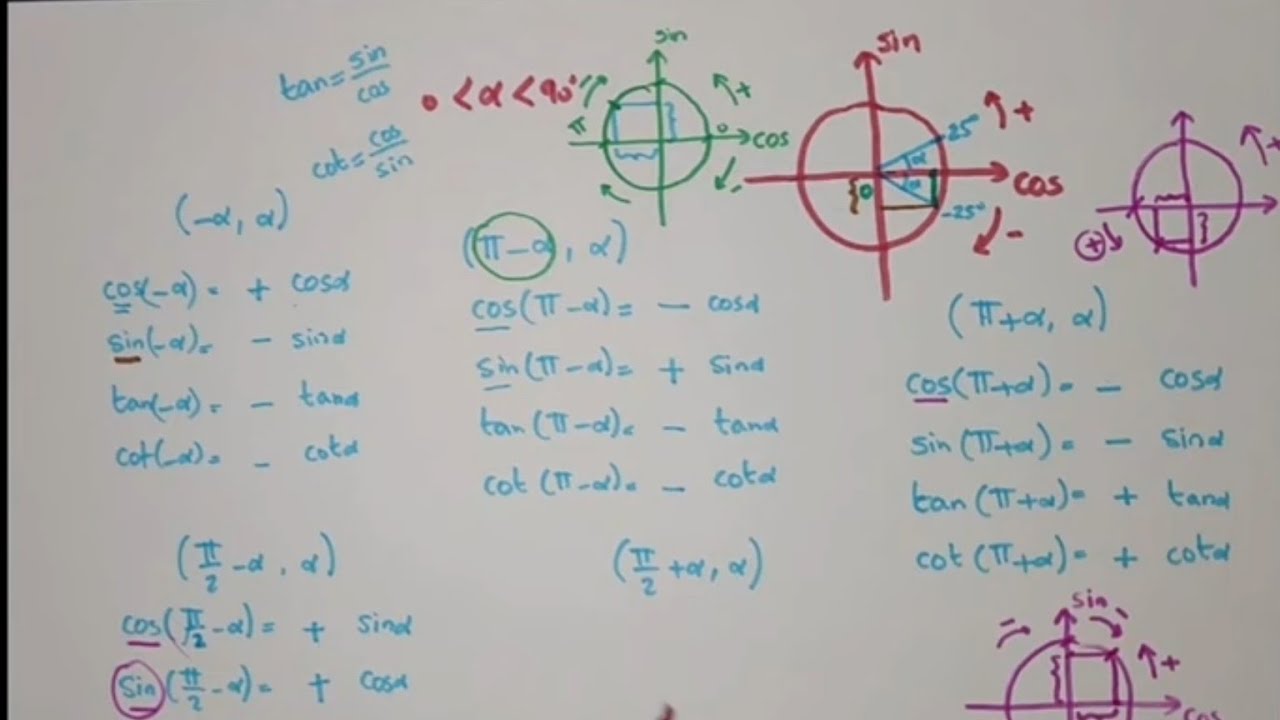 tan = sin/cos
0 < α < 90°
cot = cos/sin
sin
+
π
0
cos
-
sin
+
25°
α
cos
0
α
-25°
-
+
+
(-α, α)
cos(-α) = + cosα
sin(-α) = - sinα
tan(-α) = - tanα
cot(-α) = - cotα
(π-α, α)
cos(π-α) = - cosα
sin(π-α) = + sinα
tan(π-α) = - tanα
cot(π-α) = - cotα
(π+α, α)
cos(π+α) = - cosα
sin(π+α) = - sinα
tan(π+α) = + tanα
cot(π+α) = + cotα
(π/2 -α, α)
cos(π/2 -α) = + sinα
sin(π/2 -α) = + cosα
(π/2 +α, α)
sin
+
cos